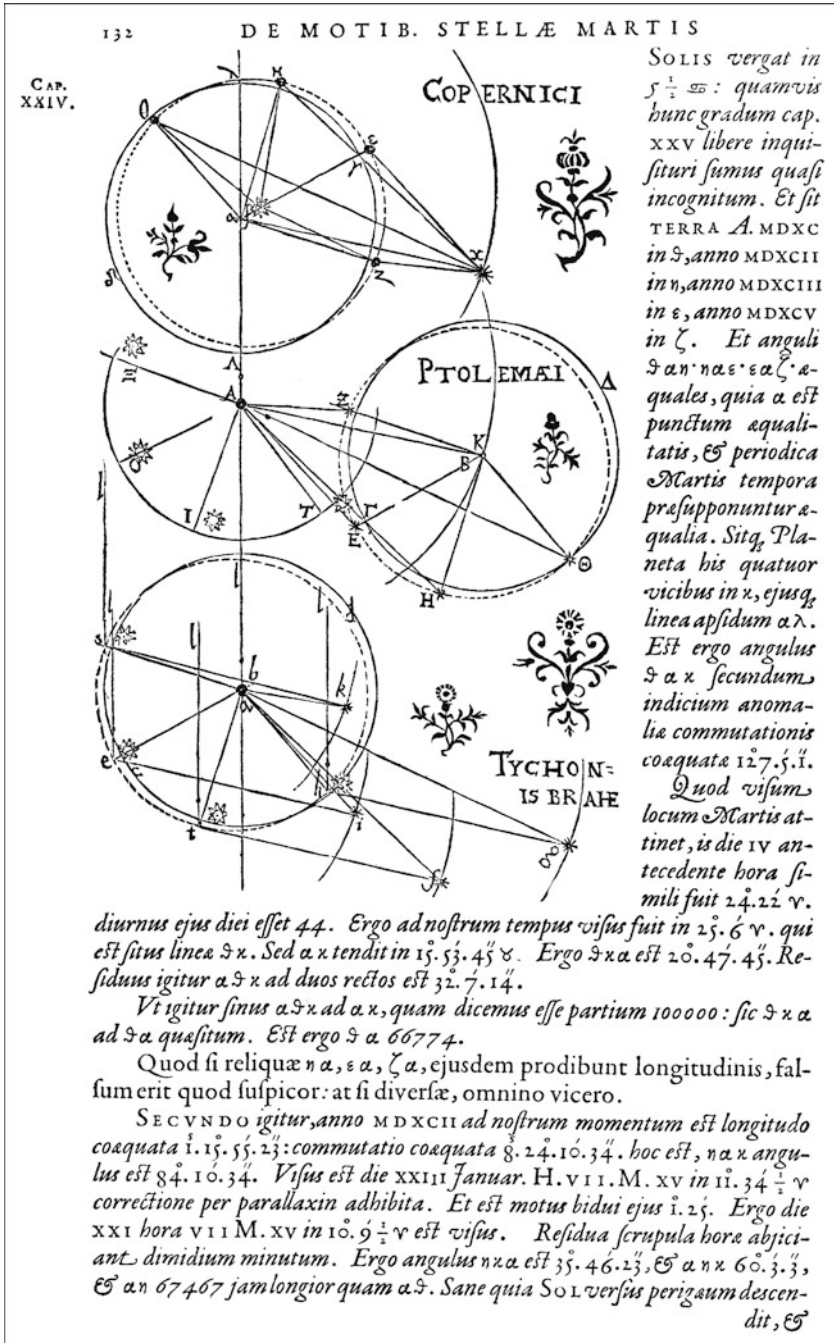 132 DE MOTIB. STELLÆ MARTIS
CAP.
XXIV.
COPERNICI
PTOLEMÆI
TYCHON=
IS BRAHE
SOLIS vergat in
5 ½ ♋: quamvis
hunc gradum cap.
XXV libere inqui-
ſituri ſumus quaſi
incognitum. Et ſit
TERRA A. MDXC
in ϑ, anno MDXCII
in η, anno MDXCIII
in ε, anno MDXCV
in ζ. Et anguli
ϑαη· ηαε· εαζ· æ-
quales, quia α eſt
punctum æquali-
tatis, & periodica
Martis tempora
præſupponuntur æ-
qualia. Sitqꝫ Pla-
neta his quatuor
vicibus in κ, ejusqꝫ
linea apſidum αλ.
Eſt ergo angulus
ϑακ ſecundum
indicium anoma-
liæ commutationis
coæquatæ 127. 5. 1.
Quod viſum
locum Martis at-
tinet, is die IV an-
tecedente hora ſi-
mili fuit 24. 22 ♈.
diurnus ejus diei eſſet 44. Ergo ad noſtrum tempus viſus fuit in 25. 6 ♈. qui
eſt ſitus lineæ ϑκ. Sed ακ tendit in 15. 53. 45 ♉. Ergo ϑκα eſt 20. 47. 45. Re-
ſiduus igitur αϑκ ad duos rectos eſt 32. 7. 14.
Vt igitur ſinus αϑκ ad ακ, quam dicemus eſſe partium 100000: ſic ϑκα
ad ϑα quæſitum. Eſt ergo ϑα 66774.
Quod ſi reliquæ ηα, εα, ζα, ejusdem prodibunt longitudinis, fal-
ſum erit quod ſuſpicor: at ſi diverſæ, omnino vicero.
SECVNDO igitur, anno MDXCII ad noſtrum momentum eſt longitudo
coæquata 1. 15. 55. 23: commutatio coæquata 8. 24. 10. 34. hoc eſt, ηακ angu-
lus eſt 84. 10. 34. Viſus eſt die XXIII Januar. H. VII. M. XV in 11. 34 ½ ♈
correctione per parallaxin adhibita. Et eſt motus bidui ejus 1. 25. Ergo die
XXI hora VII M. XV in 10. 9 ½ ♈ eſt viſus. Reſidua ſcrupula horæ abjici-
ant dimidium minutum. Ergo angulus ηκα eſt 35. 46. 23, & αηκ 60. 3. 3,
& αη 67467 jam longior quam αϑ. Sane quia SOL verſus perigæum deſcen-
dit, &